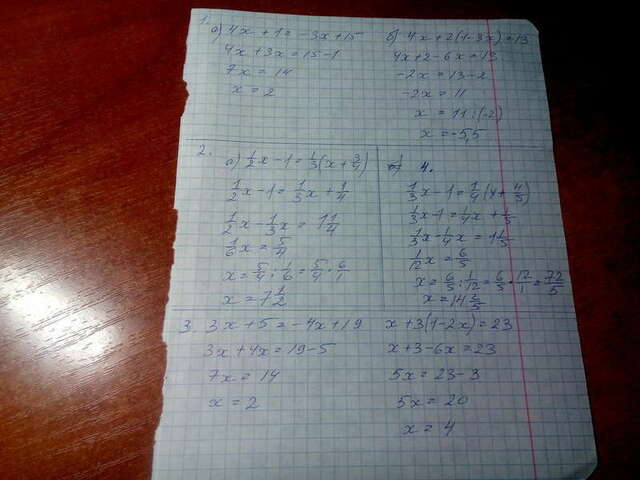 1.
а) 4x + 1 = -3x + 15
4x + 3x = 15 - 1
7x = 14
x = 2
б) 4x + 2(1 - 3x) = 13
4x + 2 - 6x = 13
-2x = 13 - 2
-2x = 11
x = 11 : (-2)
x = -5,5
2.
а) 1/2 x - 1 = 1/3 (x + 3/4)
1/2 x - 1 = 1/3 x + 1/4
1/2 x - 1/3 x = 1 1/4
1/6 x = 5/4
x = 5/4 : 1/6 = 5/4 · 6/1
x = 7 1/2
4.
1/3 x - 1 = 1/4 (x + 4/5)
1/3 x - 1 = 1/4 x + 1/5
1/3 x - 1/4 x = 1 1/5
1/12 x = 6/5
x = 6/5 : 1/12 = 6/5 · 12/1 = 72/5
x = 14 2/5
3. 3x + 5 = -4x + 19
3x + 4x = 19 - 5
7x = 14
x = 2
x + 3(1 - 2x) = 23
x + 3 - 6x = 23
5x = 23 - 3
5x = 20
x = 4